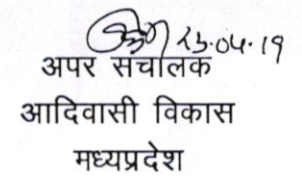 23.04.19
अपर संचालक
आदिवासी विकास
मध्यप्रदेश